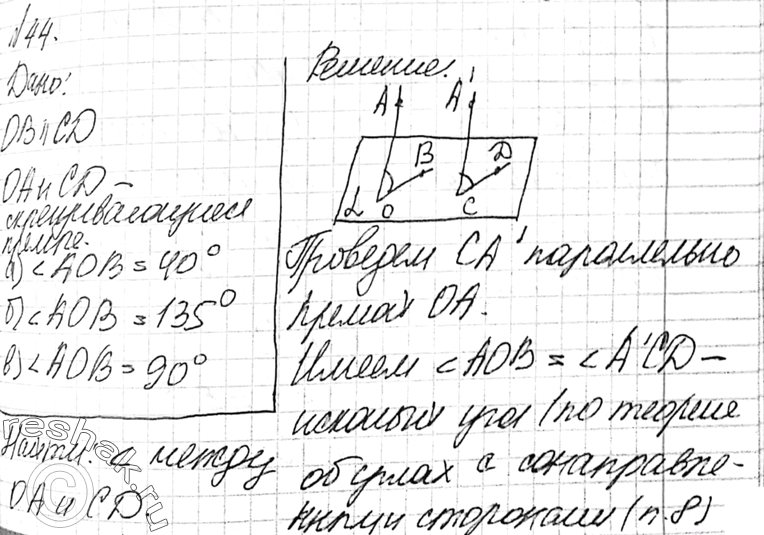 №44.
Дано:
OB ∥ CD
OA и CD –
скрещивающиеся
прямые.
а) ∠AOB = 40°
б) ∠AOB = 135°
в) ∠AOB = 90°
Найти: ∠ между
OA и CD.
Решение:
A A'
B D
α O C
Проведем CA' параллельно
прямой OA.
Имеем ∠AOB = ∠A'CD –
искомый угол (по теореме
об углах с сонаправле-
нными сторонами (п.8)
reshak.ru